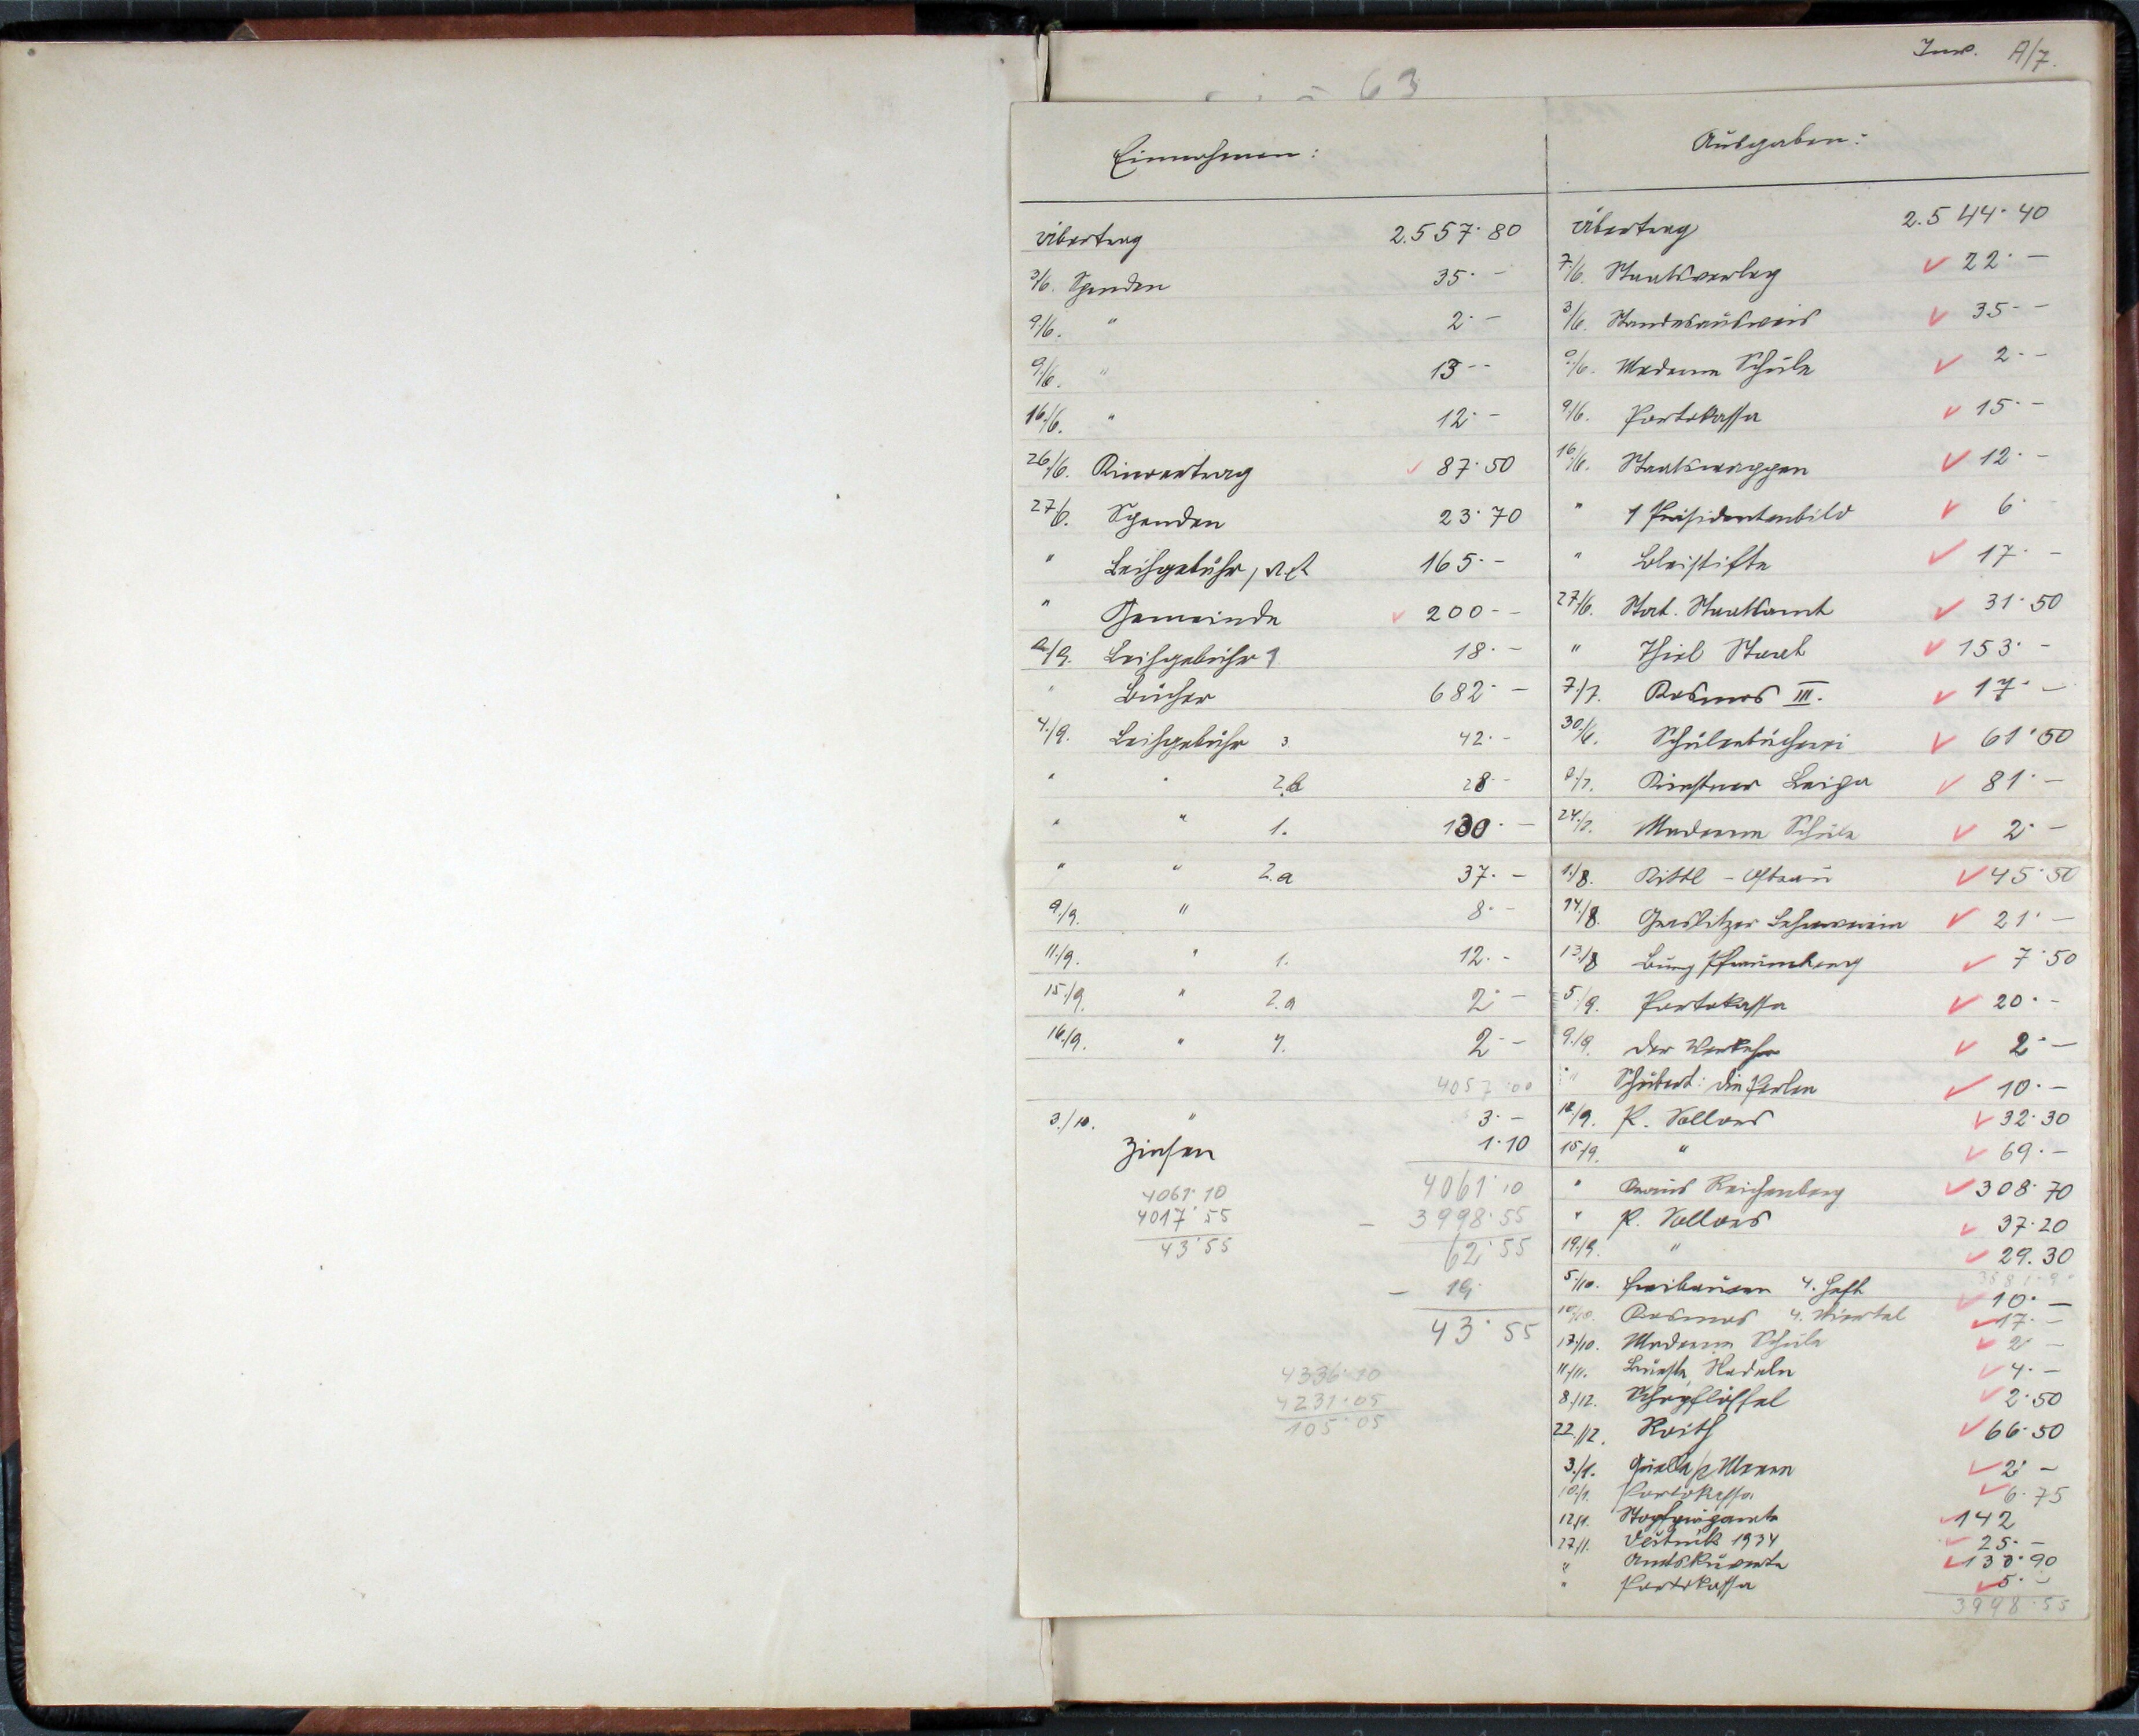 Inv. A/7.
63
Einnahmen:
Übertrag 2.557·80
3/6. Spenden 35·-
9/6. " 2·-
9/6. " 13·-
16./6. " 12·-
26/6. Kinoertrag 87·50
27/6. Spenden 23·70
" Leihgebühr, 165·-
" Gemeinde 200·-
/9. Leihgebühr 1 18·-
" Bücher 682·-
4./9. Leihgebühr 3 42·-
" " 2.b 28·-
" " 1. 130·-
" " 2.a 37·-
9./9. " 8·-
11./9. " 1. 12·-
15./9. " 2.a 2·-
16./9. " 2·-
4057·00
3./10. " 3·-
Zinsen 1·10
4061·10
- 3998·55
62·55
- 19·
43·55
4061·10
4017·55
43·55
4336·10
4231·05
105·05
Ausgaben:
Übertrag 2.544·40
7/6. Staatsverlag 22·-
3/6. Standesausweis 35·-
9/6. Moderne Schule 2·-
9/6. Portokassa 15·-
16/6. Staatswappen 12·-
" 1 Präsidentenbild 6·
" Bleistifte 17·-
27/6. Stat. Staatsamt 31·50
" Thiel Staab 153·-
7./7. Kosmos III. 17·-
30/6. Schülerbücherei 61·50
/7. Kirstner Leipa 81·-
24./7. Moderne Schule 2·-
1./8. Kittl - Ostrau 45·50
14./8. Graslitzer Lehrerverein 21·-
13./8 Burg Pfraumberg 7·50
5./9. Portokassa 20·-
9./9. Der Verkehr 2·-
" Schubert: Die Perlen 10·-
/9. P. Sollors 32·30
15./9. " 69·-
" Kraus Reichenberg 308·70
" P. Sollors 37·20
19./9. " 29.30
5./10. Freibauern 4. Heft 10·-
10/10. Kosmos 4. Viertel 17·-
17./10. Moderne Schule 2·-
11./11. Bürste, Nadeln 4·-
8./12. Schöpflöffel 2·50
22./12. Raith 66·50
3./1. 2·-
10/1. Portokassa 6·75
12./1. 142
27./1. Věstník 1934 25·-
" Amtskuverte 90
" Portokassa 5·-
3998·55